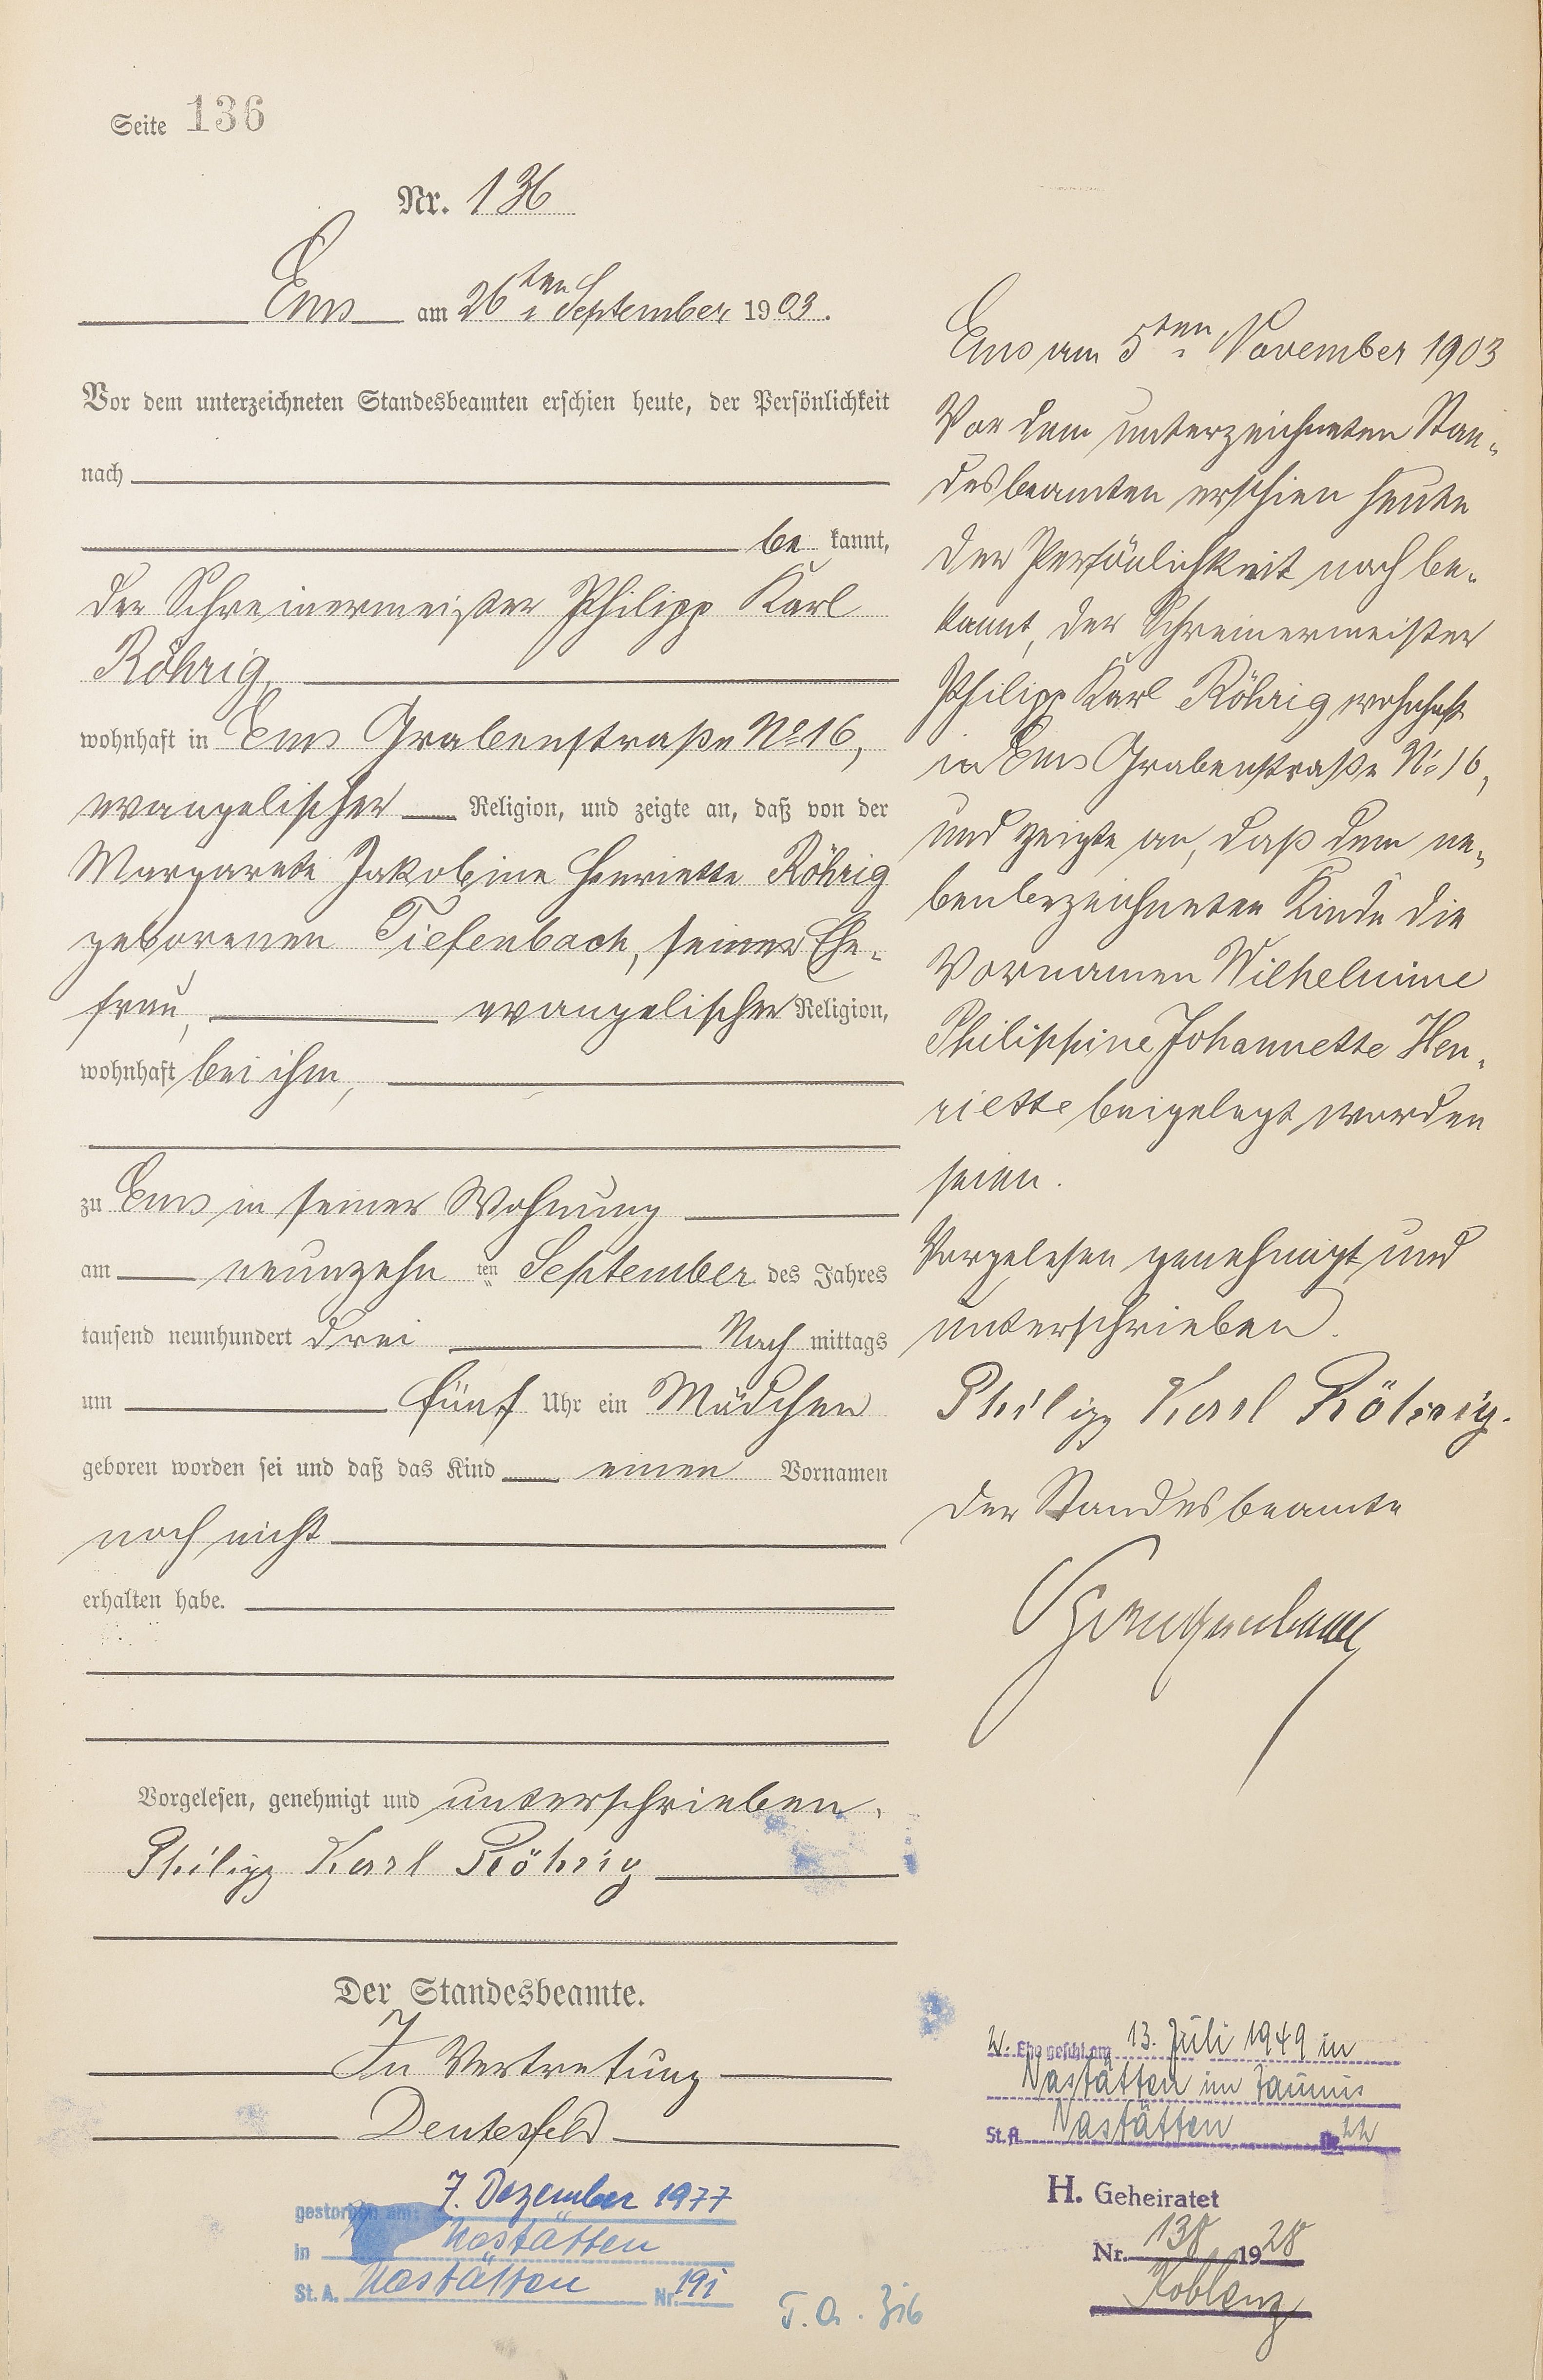 Seite 136
Nr. 136
Ems am 26ten September 1903.
Vor dem unterzeichneten Standesbeamten erschien heute, der Persönlichkeit
nach
be kannt,
der Schreinermeister Philipp Karl
Röhrig,
wohnhaft in Ems Grabenstraße No 16,
evangelischer Religion, und zeigte an, daß von der
Margarete Jakobine Henriette Röhrig
geborenen Tiefenbach, seiner Ehe-
frau, evangelischer Religion,
wohnhaft bei ihm,
zu Ems in seiner Wohnung
am neunzehn ten September des Jahres
tausend neunhundert drei Nach mittags
um fünf Uhr ein Mädchen
geboren worden sei und daß das Kind einen Vornamen
noch nicht
erhalten habe.
Vorgelesen, genehmigt und unterschrieben.
Philipp Karl Röhrig
Der Standesbeamte.
In Vertretung
Deutesfeld
gestorben am: 7. Dezember 1977
in Nastätten
St. A. Nastätten Nr. 191
Ems am 5ten November 1903
Vor dem unterzeichneten Stan-
desbeamten erschien heute
der Persönlichkeit nach be-
kannt, der Schreinermeister
Philipp Karl Röhrig wohnhaft
in Ems Grabenstraße No 16,
und zeigte an, daß dem ne-
benbezeichneten Kinde die
Vornamen Wilhelmine
Philippine Johannette Hen-
riette beigelegt worden
seien.
Vorgelesen genehmigt und
unterschrieben.
Philipp Karl Röhrig.
Der Standesbeamte
W. Ehe geschl. am 13. Juli 1949 in
Nastätten im Taunus
St. A. Nastätten Nr. 22
H. Geheiratet
Nr. 138 1928
Koblenz